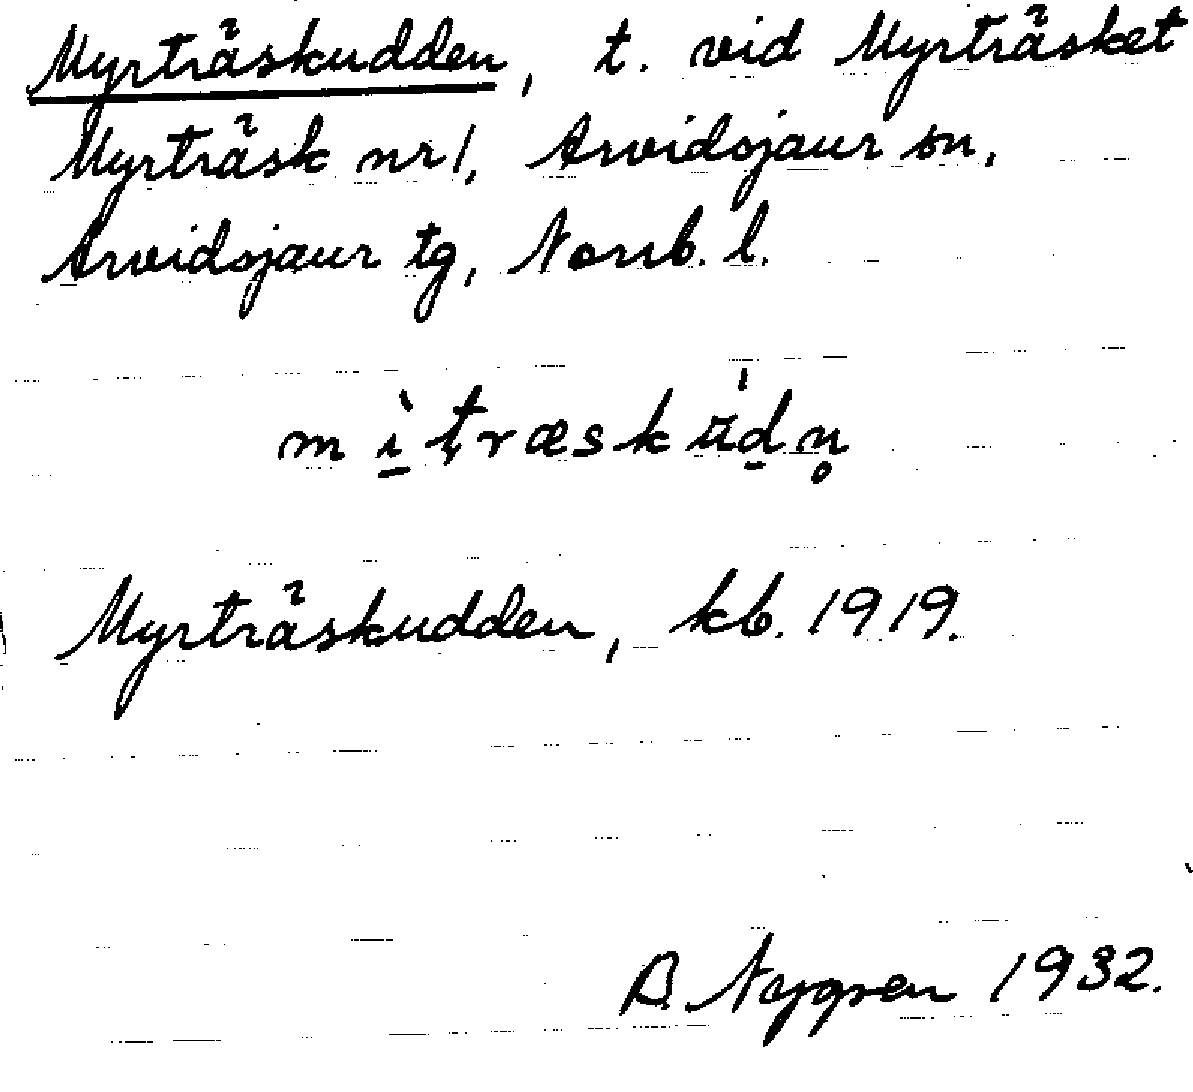 Myrträskudden, t. vid Myrträsket
Myrträsk nr 1, Arvidsjaur sn,
Arvidsjaur tg, Norrb. l.
Myrträskudden, kb. 1919.
Nygren 1932.